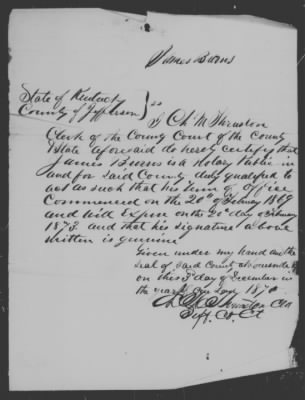 James Burns
State of Kentucky
County of Jefferson } ss
I Ch. M Thruston
Clerk of the County Court of the County
& State aforesaid do hereby certify that
James Burns is a Notary Public in
and for said County duly qualified to
act as such that his term of office
Commenced on the 20th of February 1869
and will Expire on the 20th day of February
1873 and that his signature above
written is genuine
Given under my hand and the
seal of said County at Louisville Ky
on this 3d day of December in
the year of Our Lord 1870
Ch M Thruston Clk
Jeff. Co. Ct